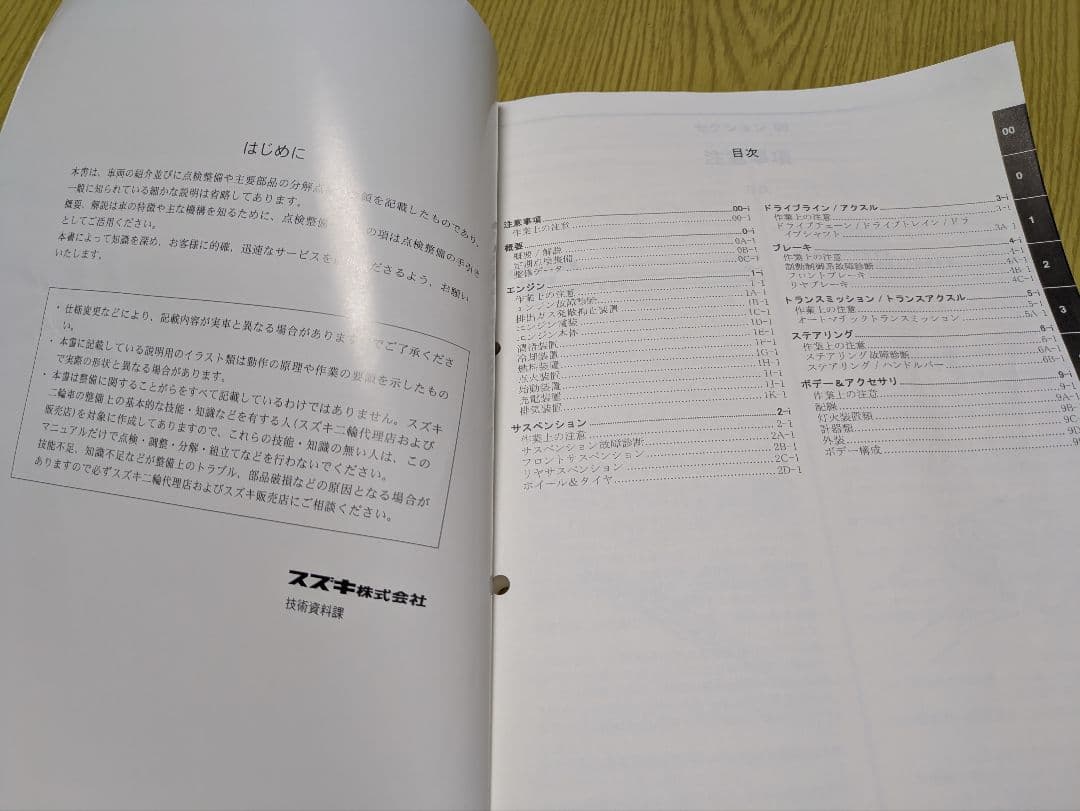 はじめに
本書は、車両の紹介並びに点検整備や主要部品の分解点 領を記載したものであり、
一般に知られている細かな説明は省略してあります。
概要、解説は車の特徴や主な機構を知るために、点検整備 の項は点検整備の手引き
としてご活用ください。
本書によって知識を深め、お客様に的確、迅速なサービスを くださるよう、お願い
いたします。
・仕様変更などにより、記載内容が実車と異なる場合があります でご了承くださ
い。
・本書に記載している説明用のイラスト類は動作の原理や作業の要領を示したもの
で実際の形状と異なる場合があります。
・本書は整備に関することがらをすべて記載しているわけではありません。スズキ
二輪車の整備上の基本的な技能・知識などを有する人(スズキ二輪代理店および
販売店)を対象に作成してありますので、これらの技能・知識の無い人は、この
マニュアルだけで点検・調整・分解・組立てなどを行わないでください。
技能不足、知識不足などが整備上のトラブル、部品破損などの原因となる場合が
ありますので必ずスズキ二輪代理店およびスズキ販売店にご相談ください。
スズキ株式会社
技術資料課
目次
注意事項 00-i
作業上の注意 00-1
概要 0-i
概要/解説 0A-1
定期点検整備 0B-1
整備データ 0C-1
エンジン 1-i
作業上の注意 1-1
エンジン故障診断 1A-1
排出ガス発散抑止装置 1B-1
エンジン電装 1C-1
エンジン本体 1D-1
潤滑装置 1E-1
冷却装置 1F-1
燃料装置 1G-1
点火装置 1H-1
始動装置 1I-1
充電装置 1J-1
排気装置 1K-1
サスペンション 2-i
作業上の注意 2-1
サスペンション故障診断 2A-1
フロントサスペンション 2B-1
リヤサスペンション 2C-1
ホイール&タイヤ 2D-1
ドライブライン/アクスル 3-i
作業上の注意 3-1
ドライブチェーン/ドライブトレイン/ドラ
イブシャフト 3A-1
ブレーキ 4-i
作業上の注意 4-1
制動制御系故障診断 4A-1
フロントブレーキ 4B-1
リヤブレーキ 4C-1
トランスミッション/トランスアクスル 5-i
作業上の注意 5-1
オートマチックトランスミッション 5A-1
ステアリング 6-i
作業上の注意 6-1
ステアリング故障診断 6A-1
ステアリング/ハンドルバー 6B-1
ボデー&アクセサリ 9-i
作業上の注意 9-1
配線 9A-1
灯火装置類 9B-
計器類 9C-
外装 9D
ボデー構成
00
0
1
2
3